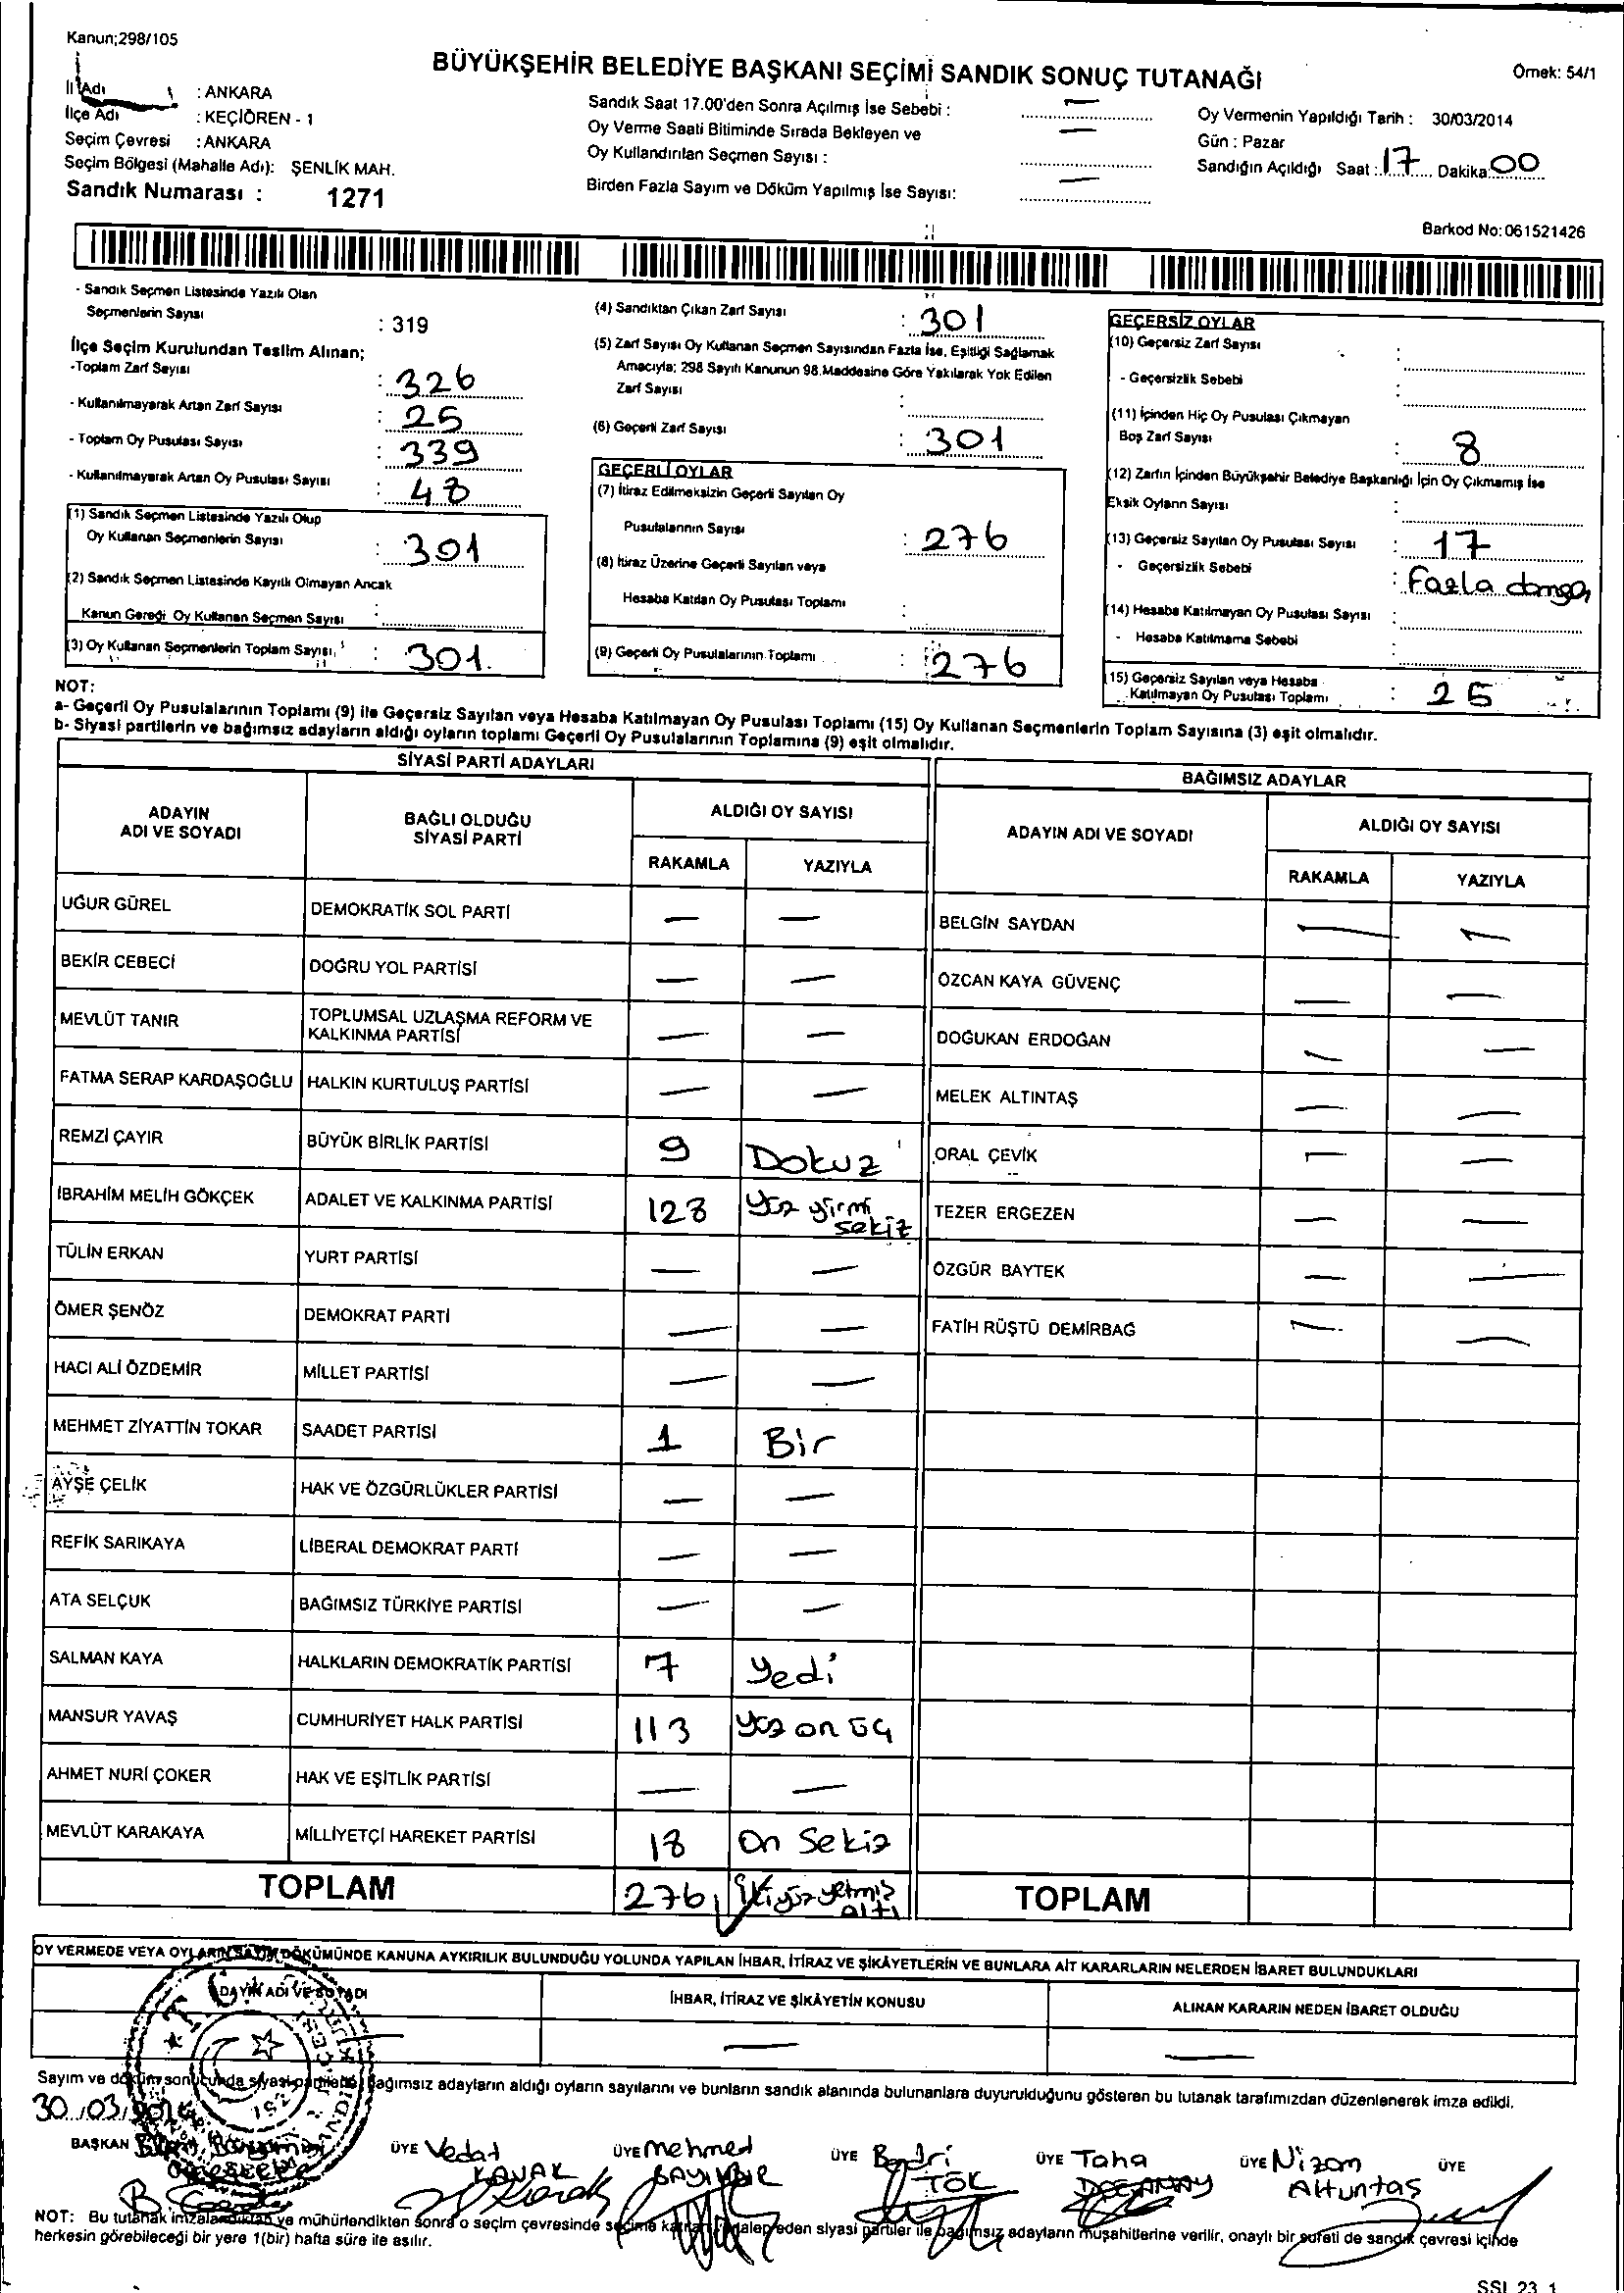 Kanun;298/105
BÜYÜKŞEHİR BELEDİYE BAŞKANI SEÇİMİ SANDIK SONUÇ TUTANAĞI
Örnek: 54/1
İl Adı : ANKARA
İlçe Adı : KEÇİÖREN - 1
Seçim Çevresi : ANKARA
Seçim Bölgesi (Mahalle Adı): ŞENLİK MAH.
Sandık Numarası : 1271
Sandık Saat 17.00'den Sonra Açılmış İse Sebebi : —
Oy Verme Saati Bitiminde Sırada Bekleyen ve
Oy Kullandırılan Seçmen Sayısı : —
Birden Fazla Sayım ve Döküm Yapılmış İse Sayısı: —
Oy Vermenin Yapıldığı Tarih : 30/03/2014
Gün : Pazar
Sandığın Açıldığı Saat : 17 Dakika: 00
Barkod No: 061521426
- Sandık Seçmen Listesinde Yazılı Olan
Seçmenlerin Sayısı : 319
İlçe Seçim Kurulundan Teslim Alınan;
-Toplam Zarf Sayısı : 326
- Kullanılmayarak Artan Zarf Sayısı : 25
- Toplam Oy Pusulası Sayısı : 339
- Kullanılmayarak Artan Oy Pusulası Sayısı : 48
(1) Sandık Seçmen Listesinde Yazılı Olup
Oy Kullanan Seçmenlerin Sayısı : 301
(2) Sandık Seçmen Listesinde Kayıtlı Olmayan Ancak
Kanun Gereği Oy Kullanan Seçmen Sayısı :
(3) Oy Kullanan Seçmenlerin Toplam Sayısı, : 301
(4) Sandıktan Çıkan Zarf Sayısı : 301
(5) Zarf Sayısı Oy Kullanan Seçmen Sayısından Fazla İse, Eşitliği Sağlamak
Amacıyla; 298 Sayılı Kanunun 98.Maddesine Göre Yakılarak Yok Edilen
Zarf Sayısı :
(6) Geçerli Zarf Sayısı : 301
GEÇERLİ OYLAR
(7) İtiraz Edilmeksizin Geçerli Sayılan Oy
Pusulalarının Sayısı : 276
(8) İtiraz Üzerine Geçerli Sayılan veya
Hesaba Katılan Oy Pusulası Toplamı :
(9) Geçerli Oy Pusulalarının Toplamı : 276
GEÇERSİZ OYLAR
(10) Geçersiz Zarf Sayısı :
- Geçersizlik Sebebi :
(11) İçinden Hiç Oy Pusulası Çıkmayan
Boş Zarf Sayısı : 8
(12) Zarfın İçinden Büyükşehir Belediye Başkanlığı İçin Oy Çıkmamış İse
Eksik Oyların Sayısı :
(13) Geçersiz Sayılan Oy Pusulası Sayısı : 17
- Geçersizlik Sebebi : Fazla damga
(14) Hesaba Katılmayan Oy Pusulası Sayısı :
- Hesaba Katılmama Sebebi :
(15) Geçersiz Sayılan veya Hesaba
Katılmayan Oy Pusulası Toplamı : 25
NOT:
a- Geçerli Oy Pusulalarının Toplamı (9) ile Geçersiz Sayılan veya Hesaba Katılmayan Oy Pusulası Toplamı (15) Oy Kullanan Seçmenlerin Toplam Sayısına (3) eşit olmalıdır.
b- Siyasi partilerin ve bağımsız adayların aldığı oyların toplamı Geçerli Oy Pusulalarının Toplamına (9) eşit olmalıdır.
SİYASİ PARTİ ADAYLARI
ADAYIN ADI VE SOYADI BAĞLI OLDUĞU SİYASİ PARTİ ALDIĞI OY SAYISI
RAKAMLA YAZIYLA
UĞUR GÜREL DEMOKRATİK SOL PARTİ — —
BEKİR CEBECİ DOĞRU YOL PARTİSİ — —
MEVLÜT TANIR TOPLUMSAL UZLAŞMA REFORM VE KALKINMA PARTİSİ — —
FATMA SERAP KARDAŞOĞLU HALKIN KURTULUŞ PARTİSİ — —
REMZİ ÇAYIR BÜYÜK BİRLİK PARTİSİ 9 Dokuz
İBRAHİM MELİH GÖKÇEK ADALET VE KALKINMA PARTİSİ 128 Yüz yirmi sekiz
TÜLİN ERKAN YURT PARTİSİ — —
ÖMER ŞENÖZ DEMOKRAT PARTİ — —
HACI ALİ ÖZDEMİR MİLLET PARTİSİ — —
MEHMET ZİYATTİN TOKAR SAADET PARTİSİ 1 Bir
AYŞE ÇELİK HAK VE ÖZGÜRLÜKLER PARTİSİ — —
REFİK SARIKAYA LİBERAL DEMOKRAT PARTİ — —
ATA SELÇUK BAĞIMSIZ TÜRKİYE PARTİSİ — —
SALMAN KAYA HALKLARIN DEMOKRATİK PARTİSİ 7 Yedi
MANSUR YAVAŞ CUMHURİYET HALK PARTİSİ 113 Yüz on üç
AHMET NURİ ÇOKER HAK VE EŞİTLİK PARTİSİ — —
MEVLÜT KARAKAYA MİLLİYETÇİ HAREKET PARTİSİ 18 On Sekiz
TOPLAM 276 ikiyüz yetmiş altı
BAĞIMSIZ ADAYLAR
ADAYIN ADI VE SOYADI ALDIĞI OY SAYISI
RAKAMLA YAZIYLA
BELGİN SAYDAN — —
ÖZCAN KAYA GÜVENÇ — —
DOĞUKAN ERDOĞAN — —
MELEK ALTINTAŞ — —
ORAL ÇEVİK — —
TEZER ERGEZEN — —
ÖZGÜR BAYTEK — —
FATİH RÜŞTÜ DEMİRBAĞ — —
TOPLAM
OY VERMEDE VEYA OYLARIN SAYIM DÖKÜMÜNDE KANUNA AYKIRILIK BULUNDUĞU YOLUNDA YAPILAN İHBAR, İTİRAZ VE ŞİKÂYETLERİN VE BUNLARA AİT KARARLARIN NELERDEN İBARET BULUNDUKLARI
ADAYIN ADI VE SOYADI İHBAR, İTİRAZ VE ŞİKÂYETİN KONUSU ALINAN KARARIN NEDEN İBARET OLDUĞU
— — —
Sayım ve döküm sonucunda siyasi partilerin bağımsız adayların aldığı oyların sayılarını ve bunların sandık alanında bulunanlara duyurulduğunu gösteren bu tutanak tarafımızdan düzenlenerek imza edildi.
30.03.2014
BAŞKAN
ÜYE Vedat KAVAK
ÜYE Mehmed BAYINDIR
ÜYE Bedri TOK
ÜYE Taha DOĞANAY
ÜYE Nizam Altuntaş
ÜYE
NOT: Bu tutanak imzalandıktan ve mühürlendikten sonra o seçim çevresinde seçime katılan talep eden siyasi partiler ile bağımsız adayların müşahitlerine verilir, onaylı bir sureti de sandık çevresi içinde
herkesin görebileceği bir yere 1(bir) hafta süre ile asılır.
SSI 23 1